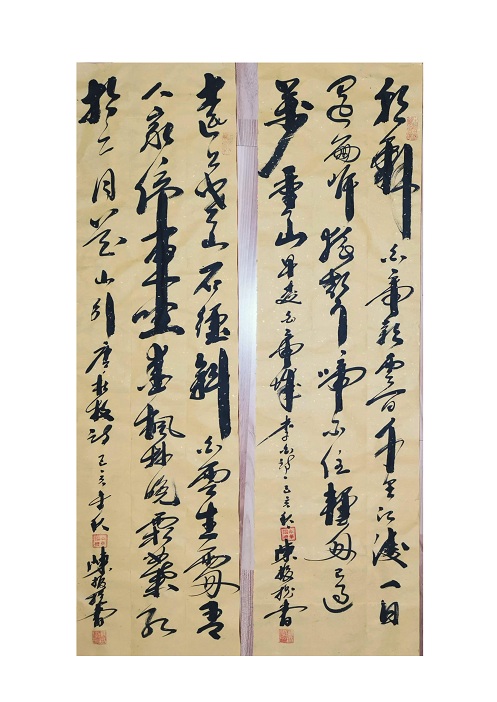 朝辭白帝彩雲間千里江陵一日
還兩岸猿聲啼不住輕舟已過
萬重山 早發白帝城 李白詩 己亥秋 陳振書
遠上寒山石徑斜白雲生處有
人家停車坐愛楓林晚霜葉紅
於二月花 山行 唐杜牧詩 己亥年秋 陳振書